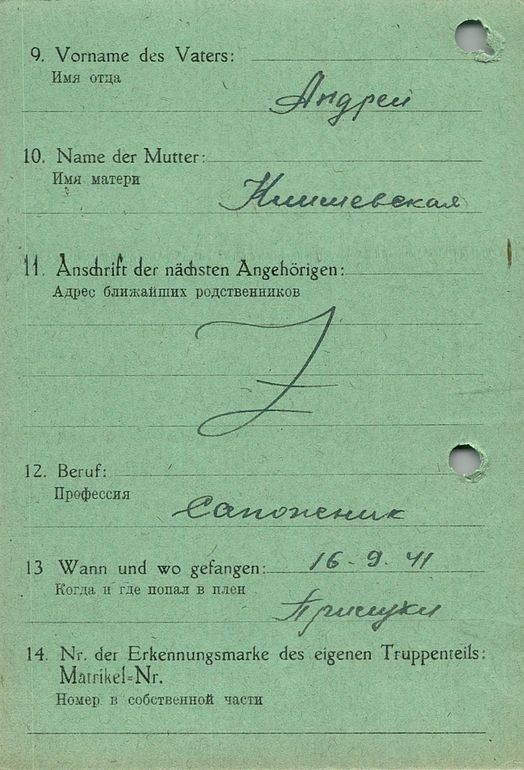 9. Vorname des Vaters:
Имя отца
Андрей
10. Name der Mutter:
Имя матери
11. Anschrift der nächsten Angehörigen:
Адрес ближайших родственников
12. Beruf:
Профессия
Сапожник
13 Wann und wo gefangen: 16-9-41
Когда и где попал в плен
14. Nr. der Erkennungsmarke des eigenen Truppenteils:
Matrikel=Nr.
Номер в собственной части